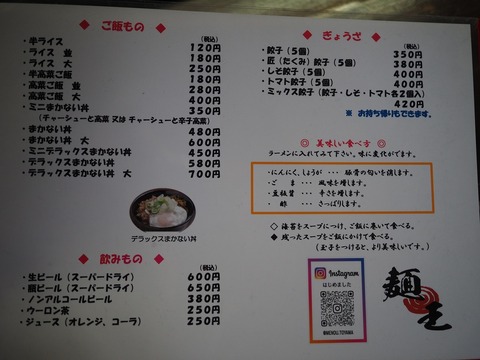 ◆ ご飯もの ◆
(税込)
・半ライス 120円
・ライス 並 180円
・ライス 大 250円
・半高菜ご飯 180円
・高菜ご飯 並 280円
・高菜ご飯 大 400円
・ミニまかない丼 350円
(チャーシューと高菜 又は チャーシューと辛子高菜)
・まかない丼 480円
・まかない丼 大 600円
・ミニデラックスまかない丼 450円
・デラックスまかない丼 580円
・デラックスまかない丼 大 700円
デラックスまかない丼
◆ 飲みもの ◆
(税込)
・生ビール (スーパードライ) 600円
・瓶ビール (スーパードライ) 650円
・ノンアルコールビール 380円
・ウーロン茶 250円
・ジュース (オレンジ、コーラ) 250円
◆ ぎょうざ ◆
(税込)
・餃子 (5個) 350円
・匠 (たくみ) 餃子 (5個) 380円
・しそ餃子 (5個) 400円
・トマト餃子 (5個) 400円
・ミックス餃子 (餃子・しそ・トマト各2個入)
420円
※ お持ち帰りもできます。
◎ 美味しい食べ方 ◎
ラーメンに入れてみて下さい。味に変化がでます。
・にんにく、しょうが ・・・ 豚骨の匂いを消します。
・ごま ・・・ 風味を増します。
・豆板醤 ・・・ 辛さを増します。
・酢 ・・・ さっぱりします。
◇ 海苔をスープにつけ、ご飯に巻いて食べる。
◆ 残ったスープをご飯にかけて食べる。
(玉子をつけると、より美味しいです。)
Instagram
はじめました
@MENOU.TOYAMA
麺王